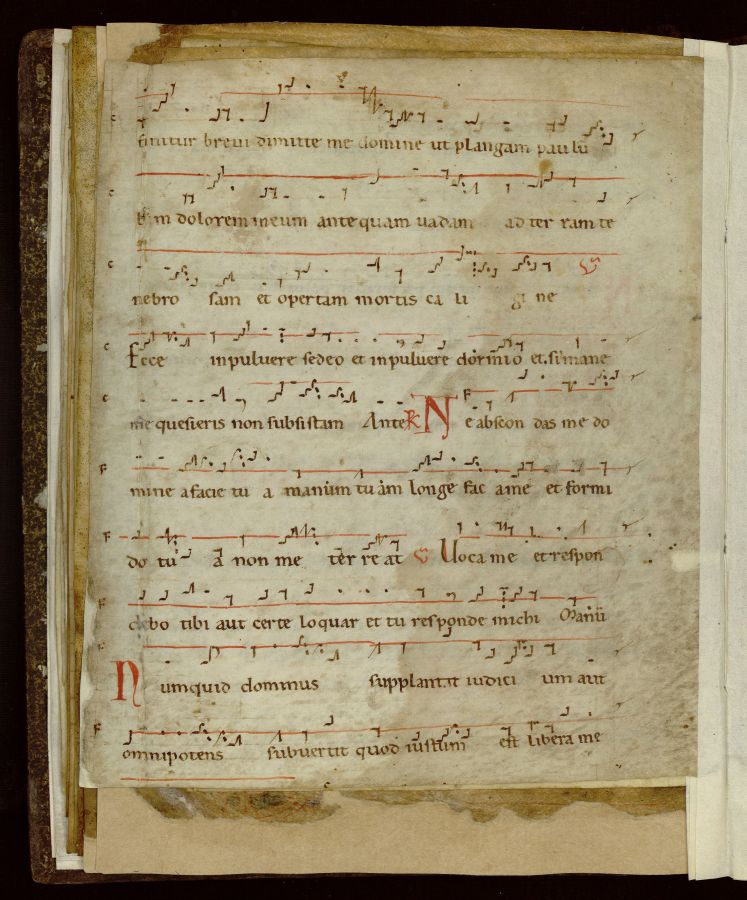 finitur brevi dimitte me domine ut plangam paulu
lum dolorem meum ante quam vadam ad ter ram te
nebro sam et opertam mortis ca li gi ne
Ecce inpulvere sedeo et inpulvere dormio et si mane
me quesieris non subsistam Ante R Ne abscon das me do
mine a facie tu a manum tu am longe fac a me et formi
do tu a non me ter re at V Voca me et respon
debo tibi aut certe loquar et tu responde michi Manū
Numquid dominus supplantat iudici um aut
omnipotens subvertit quod iustum est libera me